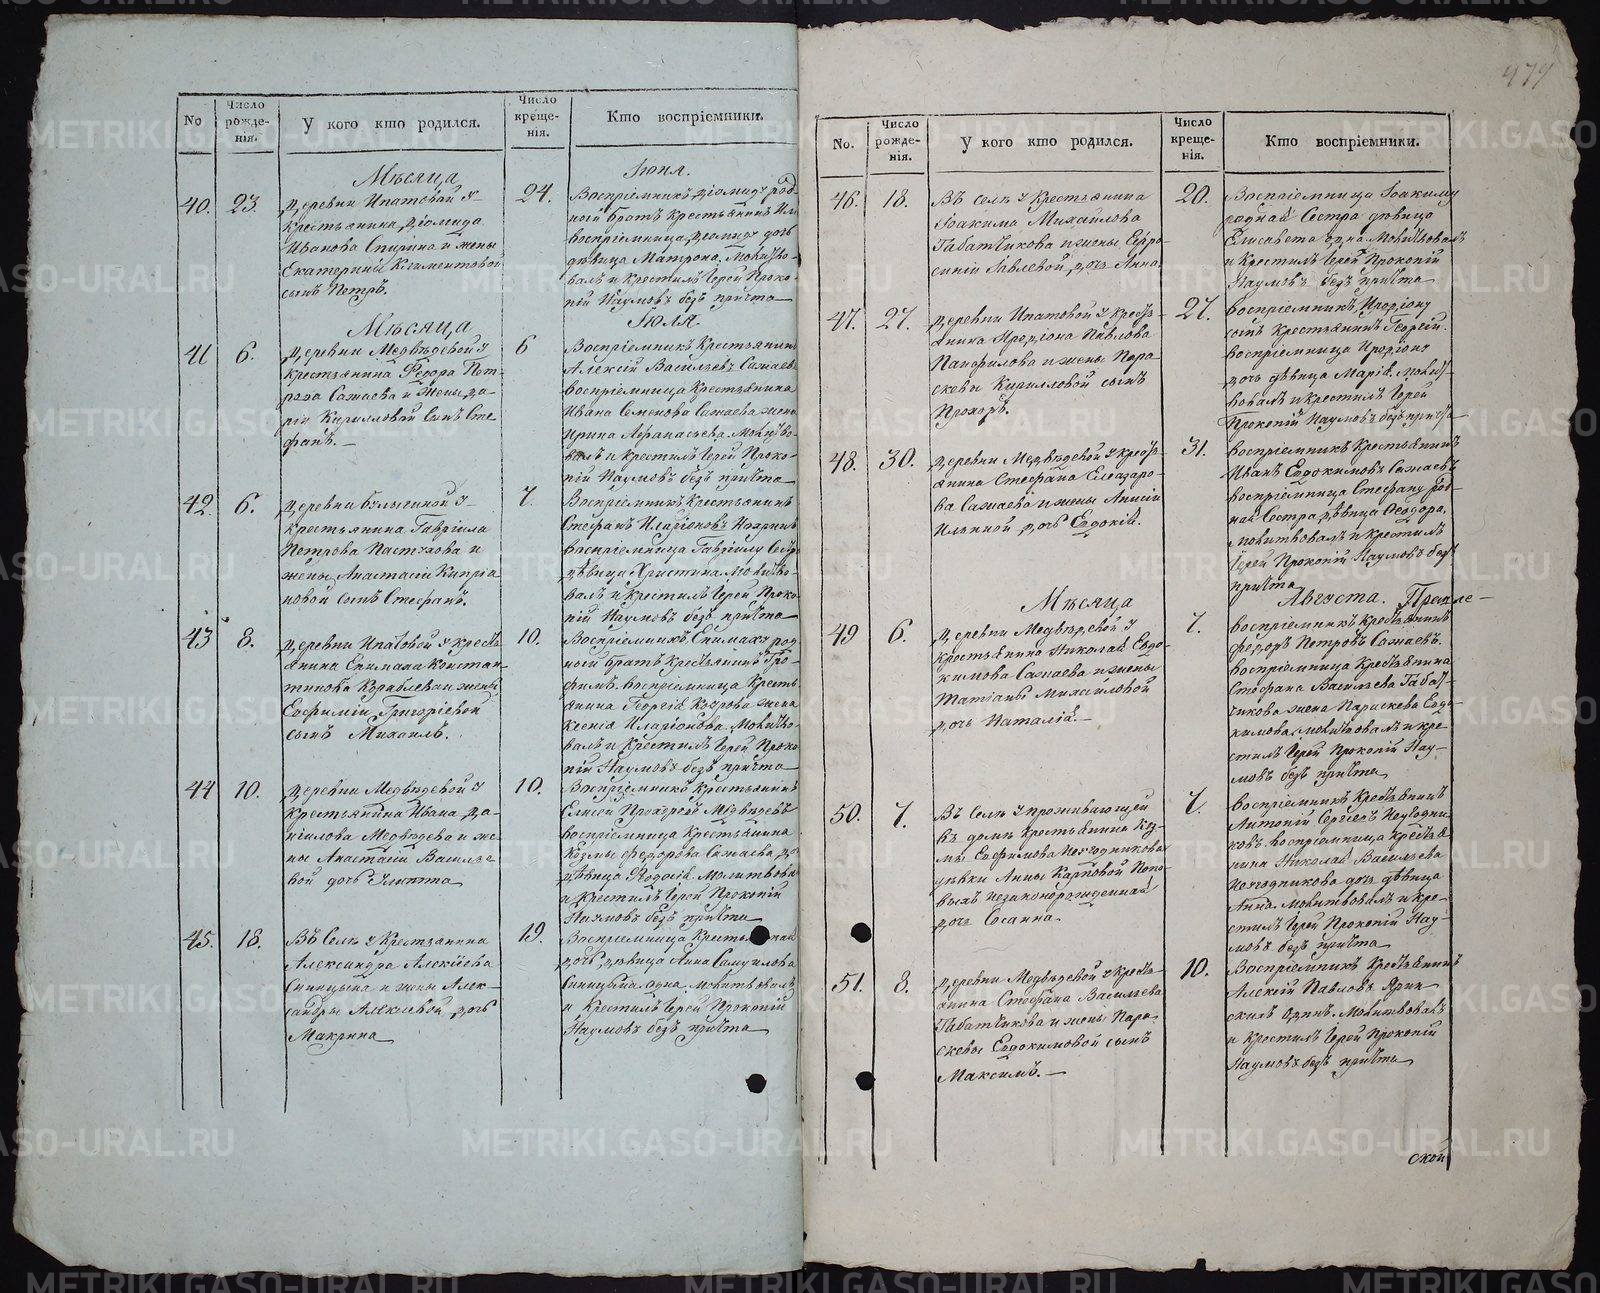 No
Число рожде-нія.
У кого кто родился.
Число креще-нія.
Кто воспріемники.
Мѣсяца Іюня.
40. 23. 24.
Деревни Ипатовой у
крестьянина Діомида
Иванова Спирина и жены
Екатерины Климентовой
сынъ Петръ.
Воспріемникъ Діомиду род-
ный братъ крестьянинъ
воспріемница Діомиду дочь
дѣвица Матрона. Молитво-
валъ и крестилъ Іерей Проко-
пій Наумовъ безъ причта
Мѣсяца Іюля.
41 6. 6
Деревни Медвѣдевой у
крестьянина Ѳедора Пет-
рова Сажаева и жены Да-
ріи Кирилловой сынъ Сте
фанъ.
Воспріемникъ крестьянинъ
Алексій Васильевъ Сажаевъ
воспріемница крестьянина
Ивана Семенова Сажаева жена
Ирина Афанасьева. Молитво-
валъ и крестилъ Іерей Проко-
пій Наумовъ безъ причта
42. 6. 7.
Деревни у
крестьянина Гавріила
Петрова Пастухова и
жены Анастасіи Кипріа
новой сынъ Стефанъ.
Воспріемникъ крестьянинъ
Стефанъ Иларіоновъ
воспріемница Гавріилу сестра
дѣвица Христина. Молитво-
валъ и крестилъ Іерей Проко
пій Наумовъ безъ причта
43 8. 10.
Деревни Ипатовой у кресть
янина Епимаха Констан-
тинова Кораблева и жены
Евфиміи Григоріевой
сынъ Михаилъ.
Воспріемникъ Епимаху род
ный братъ крестьянинъ Тро-
фимъ. воспріемница кресть
янина Георгія жена
Ксенія Иларіонова. Молитво-
валъ и крестилъ Іерей Проко
пій Наумовъ безъ причта
44 10. 10.
Деревни Медвѣдевой у
крестьянина Ивана Да-
ніилова Медвѣдева и же-
ны Анастасіи Василье
вой дочь
Воспріемникъ крестьянинъ
Елисей Прохоровъ Медвѣдевъ
воспріемница крестьянина
Козмы Федорова Сажаева
дѣвица Молитвовалъ
и крестилъ Іерей Прокопій
Наумовъ безъ причта
45. 18. 19.
Въ селѣ у крестьянина
Александра Алексѣева
Синицына и жены Алек-
сандры Алексѣевой дочь
Макрина
Воспріемница
дочь дѣвица Анна Самуилова
Синицына одна. молитвовалъ
и крестилъ Іерей Прокопій
Наумовъ безъ причта
No.
Число рожде-нія.
У кого кто родился.
Число креще-нія.
Кто воспріемники.
46. 18. 20.
Въ селѣ у крестьянина
Іоакима Михайлова
Табатчикова и жены Евфро
синіи Іавлевой дочь Анна.
Воспріемница Іоакиму
родная сестра дѣвица
Елисавета одна. Молитвовалъ
и крестилъ Іерей Прокопій
Наумовъ безъ причта
47. 27. 27.
Деревни Ипатовой у кресть-
янина Иродіона Павлова
Панфилова и жены Пара
скевы Кирилловой сынъ
Прохоръ.
воспріемникъ Иродіону
сынъ крестьянинъ Георгій.
воспріемница Иродіону
дочь дѣвица Марія. молит-
вовалъ и крестилъ Іерей
Прокопій Наумовъ безъ причта
48. 30. 31.
Деревни Медвѣдевой у кресть-
янина Стефана Елеазаро-
ва Сажаева и жены Анисіи
Ильиной дочь Евдокія.
воспріемникъ крестьянинъ
Иванъ Евдокимовъ Сажаевъ
воспріемница Стефану род-
ная сестра дѣвица Ѳеодора.
молитвовалъ и крестилъ
Іерей Прокопій Наумовъ безъ
причта
Мѣсяца Августа.
49 6. 7.
Деревни Медвѣдевой у
крестьянина Николая Евдо-
кимова Сажаева и жены
Татіаны Михаиловой
дочь Наталія.
воспріемникъ крестьянинъ
Федоръ Петровъ Сажаевъ.
воспріемница крестьянина
Стефана Васильева Табат-
чикова жена Параскева Евдо-
кимова. молитвовалъ и кре-
стилъ Іерей Прокопій Нау-
мовъ безъ причта
50. 7. 7.
Въ селѣ у проживающей
въ домѣ крестьянина Коз-
мы Евфимова Негодникова
дѣвки Анны Карповой Попо-
выхъ незаконорожденная
дочь Сосанна.
воспріемникъ крестьянинъ
Антоній Сергѣевъ Негодни-
ковъ воспріемница крестья
нина Николая Васильева
Негодникова дочь дѣвица
Анна. молитвовалъ и кре-
стилъ Іерей Прокопій Нау-
мовъ безъ причта
51. 8. 10.
Деревни Медвѣдевой у кресть-
янина Стефана Васильева
Табатчикова и жены Пара-
скевы Евдокимовой сынъ
Максимъ.
Воспріемникъ крестьянинъ
Алексій Павловъ
одинъ. Молитвовалъ
и крестилъ Іерей Прокопій
Наумовъ безъ причта
ской
METRIKI.GASO-URAL.RU